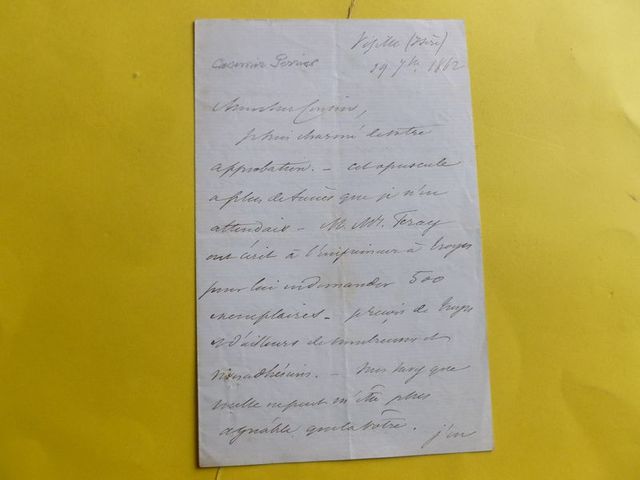 Vizille (Isère)
Casimir Perier
29 7bre 1862
Mon cher Cousin,
je suis charmé de votre
approbation. – cet opuscule
a plus de succès que je n'en
attendais – M. Mrs. Feray
ont écrit à l'imprimeur à Troyes
pour lui en demander 500
exemplaires – je reçois de Troyes
et d'ailleurs de nombreuses et
vives adhésions. –
que
nulle ne peut m'être plus
agréable que la vôtre. j'en